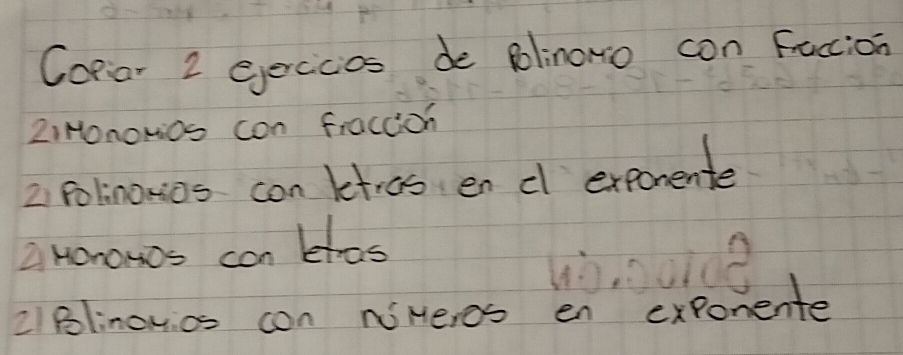 Copiar 2 ejercicios de Polinomio con Fracción
2) Monomios con fracción
2) Polinomios con letras en el exponente
2 Monomios con letras
2) Polinomios con números en exponente